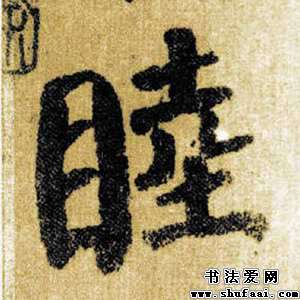 睦
书法爱网
www.shufaai.com